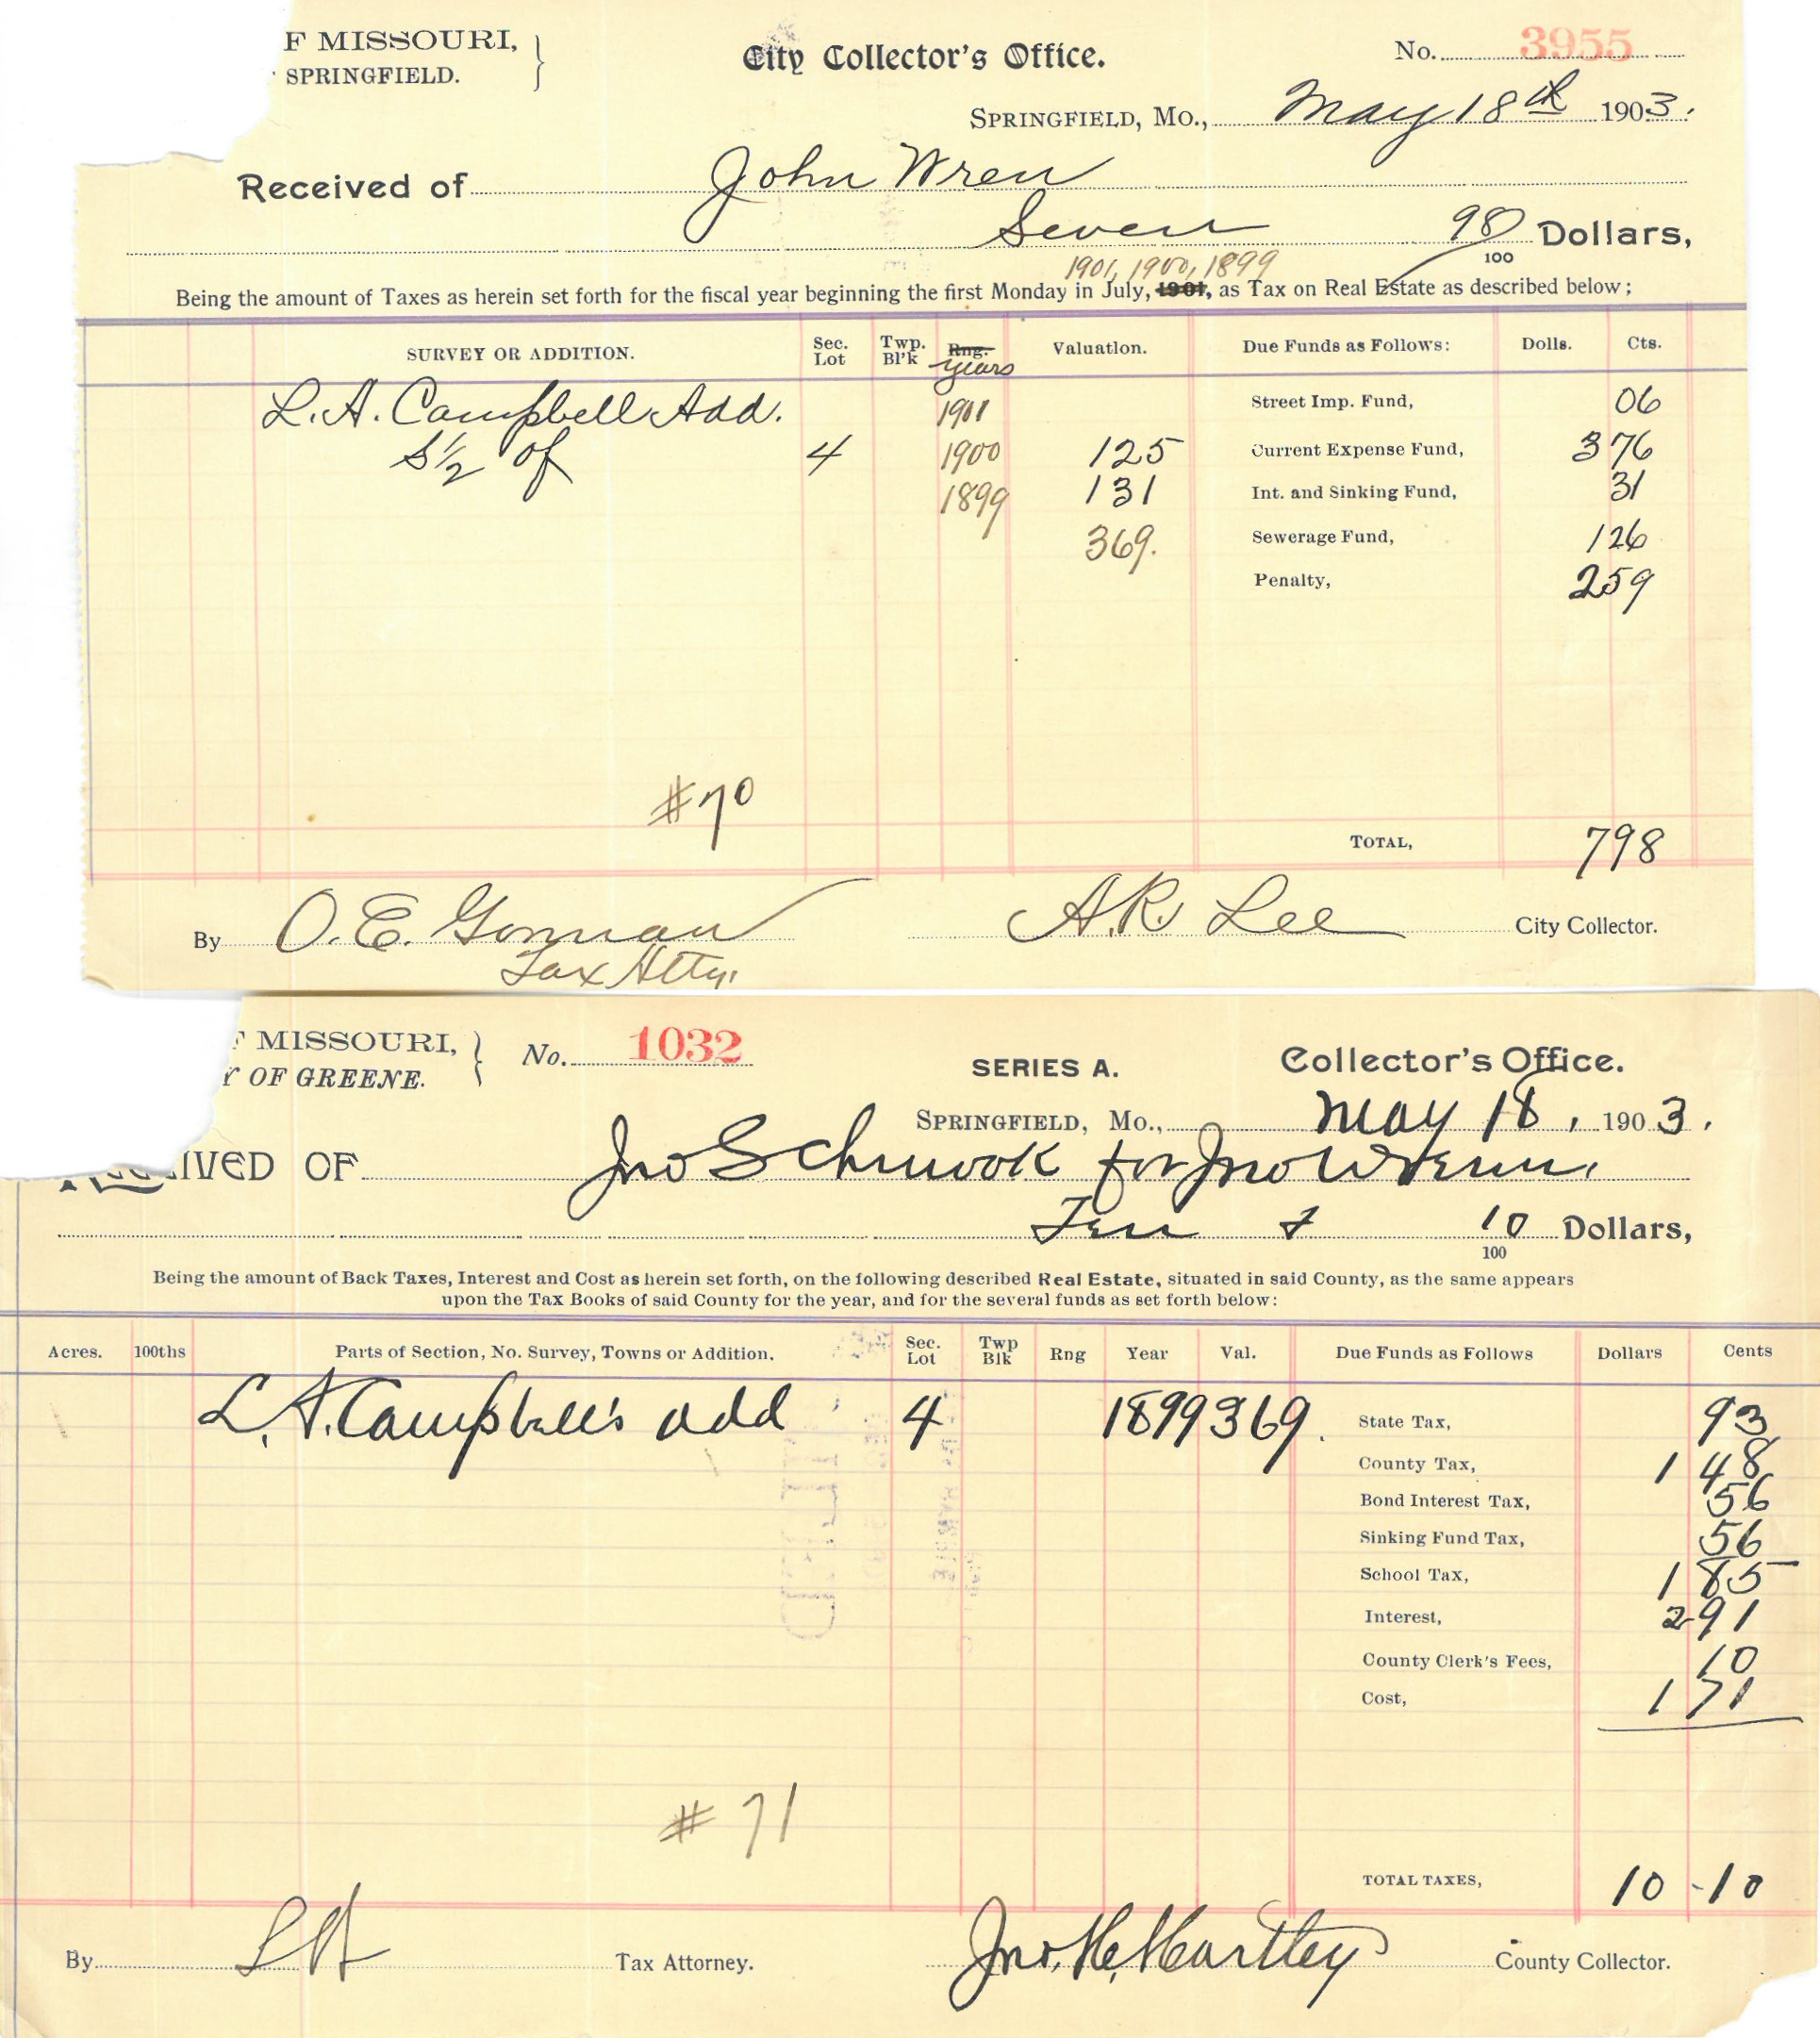 F MISSOURI,
SPRINGFIELD.
City Collector's Office.
No. 3955
SPRINGFIELD, MO., May 18th 1903.
Received of John Wren
Seven 98/100 Dollars,
1901, 1900, 1899
Being the amount of Taxes as herein set forth for the fiscal year beginning the first Monday in July, 1901, as Tax on Real Estate as described below;
SURVEY OR ADDITION. Sec. Lot Twp. Bl'k Rng. years Valuation. Due Funds as Follows: Dolls. Cts.
L. A. Campbell Add. 1901 Street Imp. Fund, 06
S 1/2 of 4 1900 125 Current Expense Fund, 3 76
1899 131 Int. and Sinking Fund, 31
369. Sewerage Fund, 1 26
Penalty, 2 59
#70
TOTAL, 7 98
By O. E. Gorman A. R. Lee City Collector.
Tax Atty.
F MISSOURI,
Y OF GREENE.
No. 1032
SERIES A.
Collector's Office.
SPRINGFIELD, MO., May 18, 1903.
IVED OF Jno Schmook for Jno Wrenn.
Ten & 10/100 Dollars,
Being the amount of Back Taxes, Interest and Cost as herein set forth, on the following described Real Estate, situated in said County, as the same appears
upon the Tax Books of said County for the year, and for the several funds as set forth below:
Acres. 100ths Parts of Section, No. Survey, Towns or Addition. Sec. Lot Twp Blk Rng Year Val. Due Funds as Follows Dollars Cents
L. A. Campbell's add 4 1899 369. State Tax, 93
County Tax, 1 48
Bond Interest Tax, 56
Sinking Fund Tax, 56
School Tax, 1 85
Interest, 2 91
County Clerk's Fees, 10
Cost, 1 71
# 71
TOTAL TAXES, 10-10
By Tax Attorney. Jno. H. Hartley County Collector.